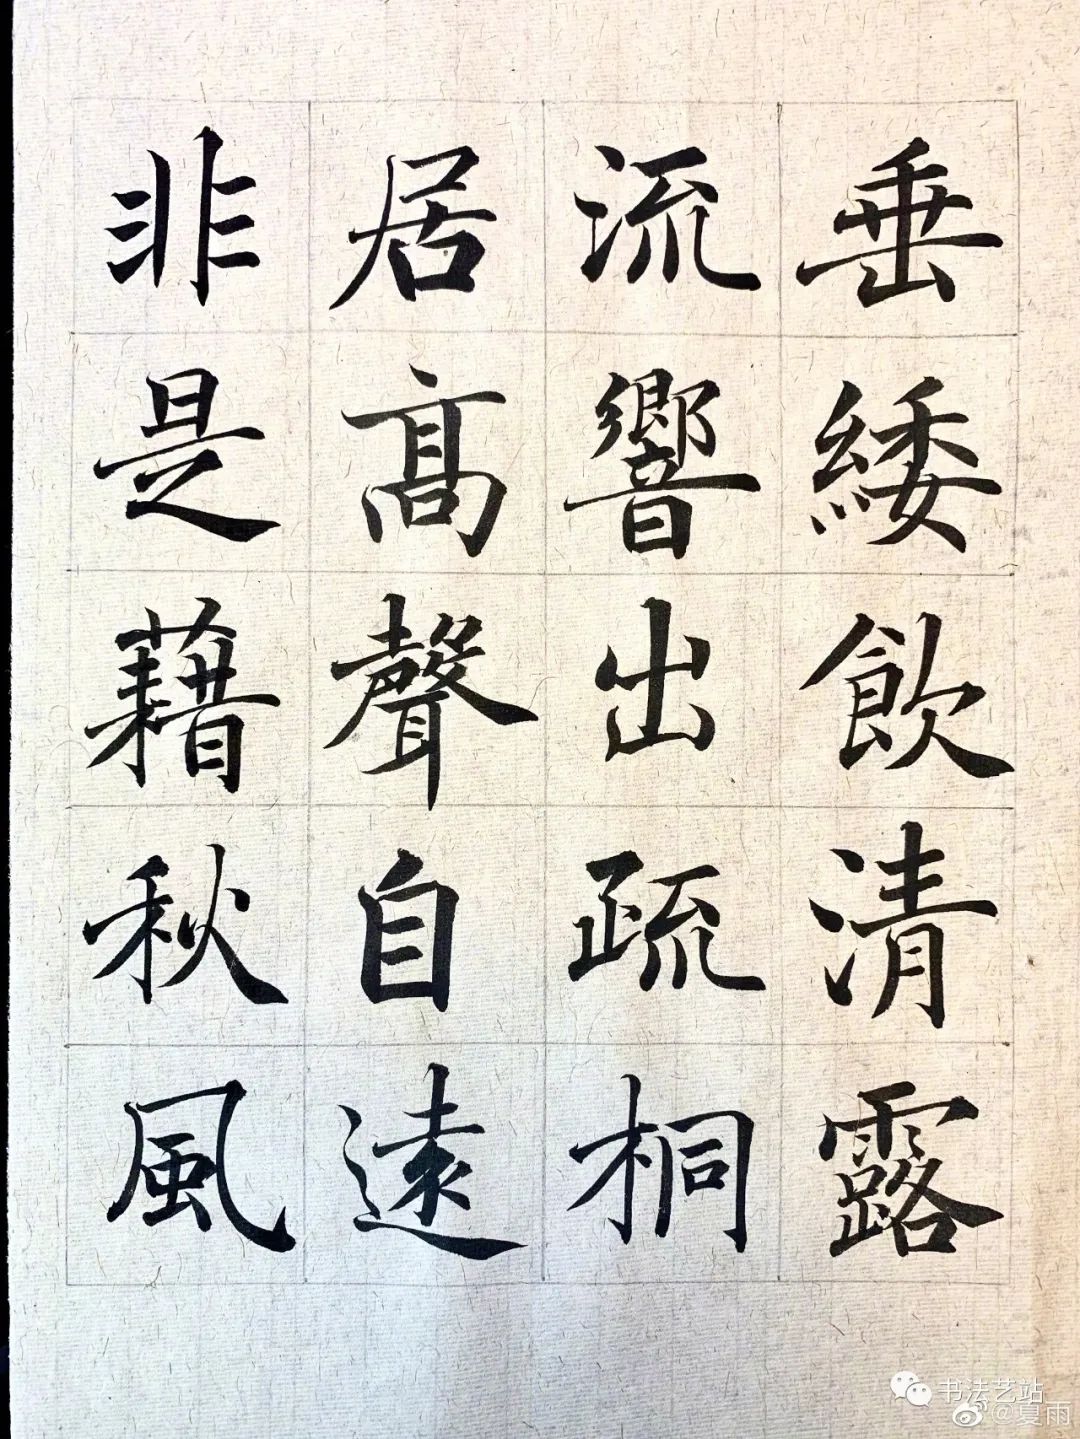 垂緌飲清露
流響出疏桐
居高聲自遠
非是藉秋風
书法艺站
@夏雨